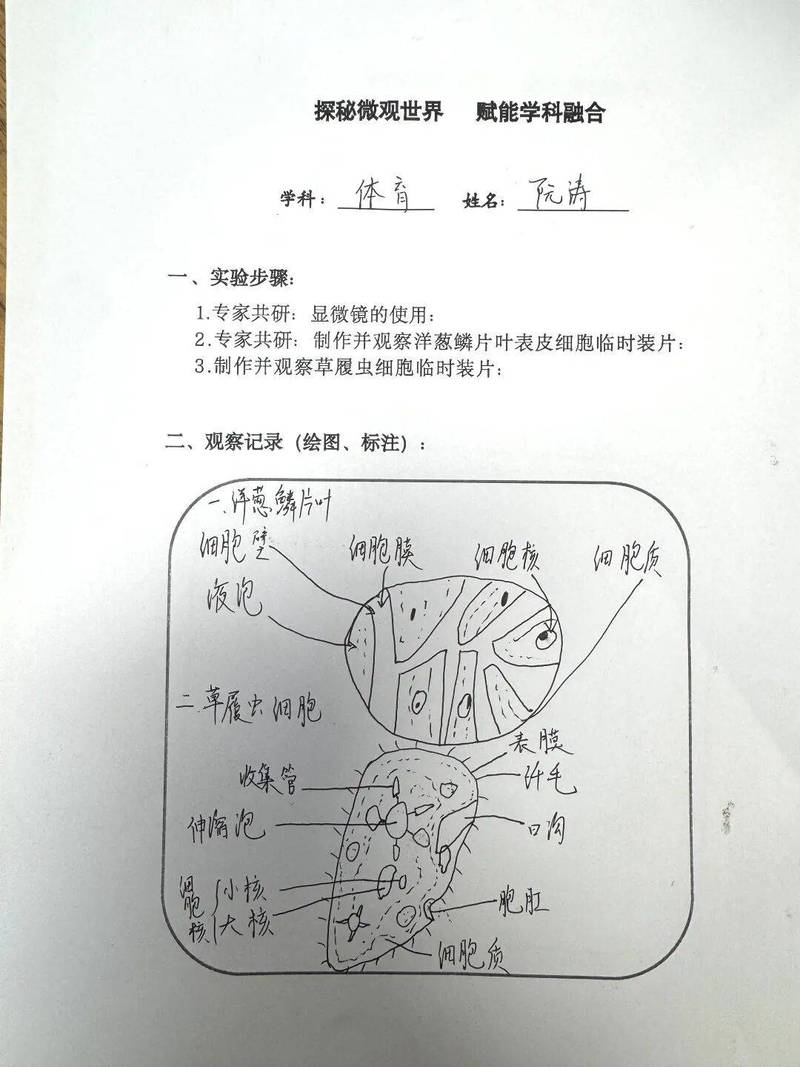 探秘微观世界 赋能学科融合
学科：体育 姓名：阮涛
一、实验步骤：
1.专家共研：显微镜的使用；
2.专家共研：制作并观察洋葱鳞片叶表皮细胞临时装片；
3.制作并观察草履虫细胞临时装片；
二、观察记录（绘图、标注）：
一.洋葱鳞片叶
细胞壁 细胞膜 细胞核 细胞质
液泡
二.草履虫细胞
表膜
收集管 纤毛
伸缩泡 口沟
细胞核 小核
大核 胞肛
细胞质